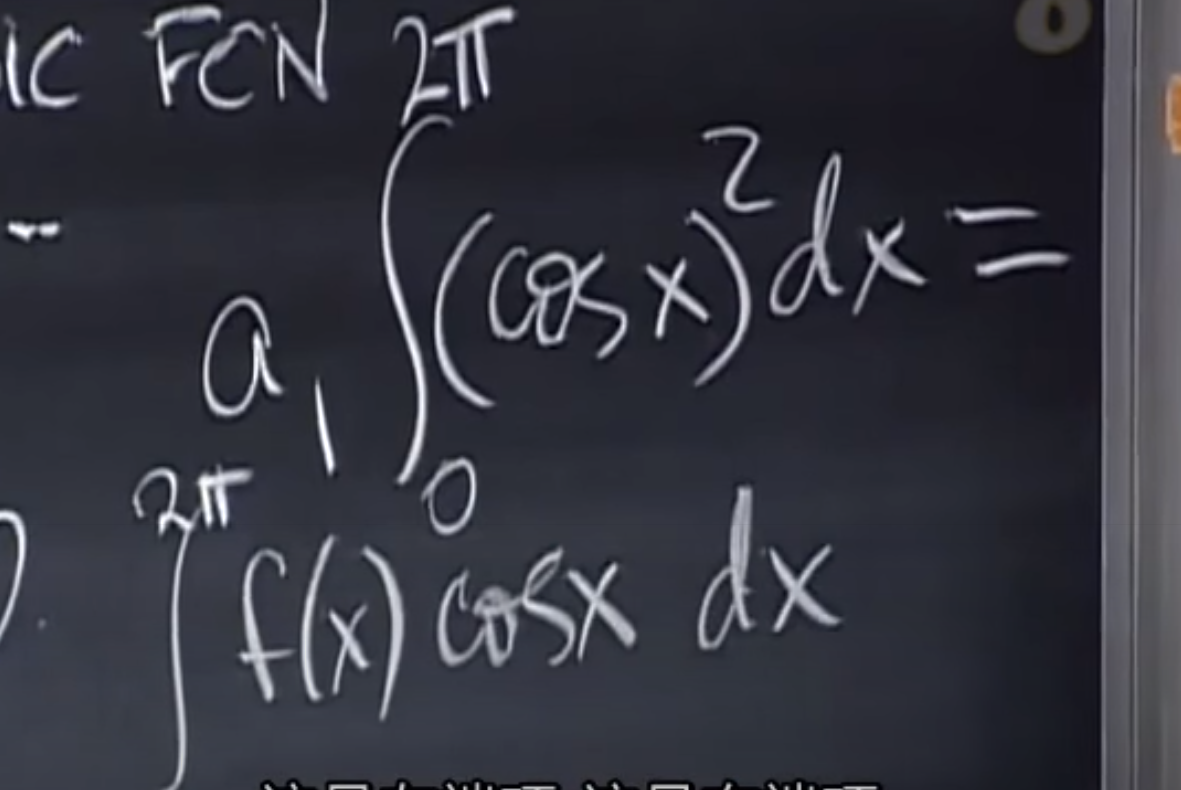 IC FCN
a₁ ∫₀^2π (cos x)² dx =
∫^2π f(x) cos x dx